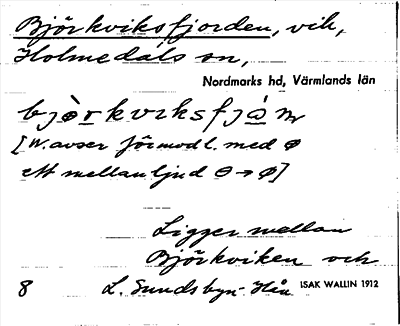 Björkviksfjorden, vik,
Holmedals sn,
Nordmarks hd, Värmlands län
bjørkviksfjạ́ṇ
[W. avser förmodl. med ø
ett mellanljud ɵ → ø]
Ligger mellan
Björkviken och
8 L. Sundsbyn-Hån ISAK WALLIN 1912